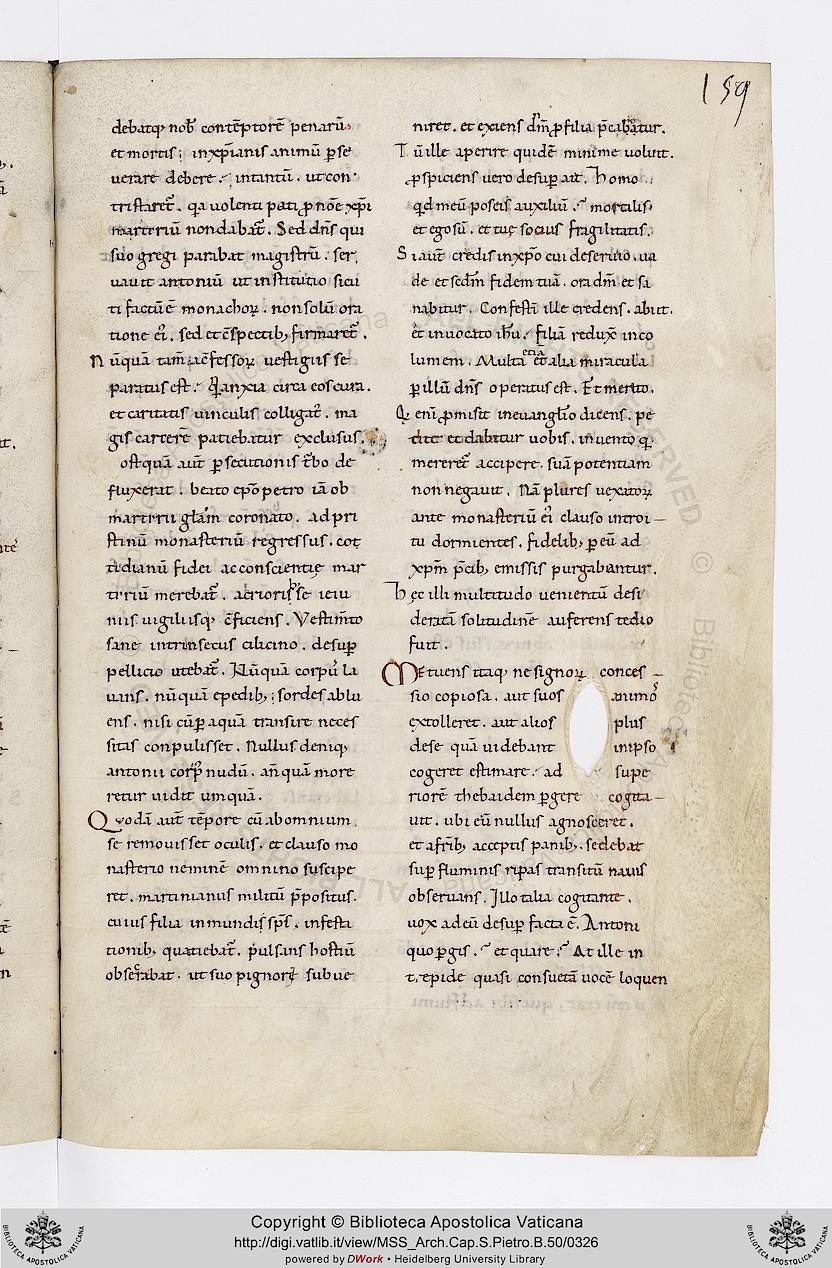 159
debatq; nob̄ contēptorē penarū
et mortis; inxp̄ianis animū ꝑse
uerare debere; intantū. ut con
tristaret̄. qa uolenti pati ꝓ nōe xp̄i
marterīū nondabat̄. Sed dn̄s qui
suo gregi parabat magistrū. ser
uauit antoniū ut institutio sicu
ti factū ē monachoꝝ. nonsolū ora
tione ei. sed et ēspectib; firmaret̄.
Nūquā tam̄ ac̄fessoꝝ uestigiis se
paratus est. Qanxia circa eos cura.
et caritatis uinculis colligat̄. ma
gis carcerē patiebatur exclusus.
ostquā aut̄ ꝑsecutionis t̄bo de
fluxerat. beato ep̄o petro iā ob
martirii gl̄am coronato. ad pri
stinū monasteriū regressus. cot
tidianū fidei ac conscientię mar
tiriū merebat̄. acrioribꝰ se ieiu
niis uigiliisq; c̄ficiens. Vestim̄to
sane intrinsecus cilicino. desuꝑ
pellicio utebat̄. Nūquā corpꝰ la
uans. nūquā epedib; sordes ablu
ens. nisi cū ꝑ aquā transire neces
sitas conpulisset. Nullus deniq;
antonii corpꝰ nudū. an̄ quā more
retur uidit umquā.
Quodā aut̄ tēpore cū abomnium
se remouisset oculis. et clauso mo
nasterio neminē omnino suscipe
ret. martinianus militū p̄positus.
cuius filia inmundiꝰ sp̄s. infesta
tionib; quatiebat̄. pulsans hostiū
obsecrabat. ut suo pignori subue
niret. et exiens dm̄ ꝓ filia p̄cabatur.
Tū ille aperire quidē minime uoluit.
ꝓspiciens uero desuꝑ ait. homo
qd meū poscis auxiliū. mortilis
et ego sū. et tuę socius fragilitatis.
Si aut̄ credis inxp̄o cui deseruio. ua
de et scdm̄ fidem tuā. ora dm̄ et sa
nabitur. Confestī ille credens. abiit.
et inuocato ih̄u. filiā reduxit inco
lumem. Multa et alia miracula
ꝑ illū dn̄s operatus est. Et merito.
Qi eni ꝓmisit ineuanghl̄io dicens. pe
tite et dabitur uobis. inuento qi
mereret̄ accipere. suā potentiam
non negauit. Nā plures uexatoꝝ
ante monasteriū ei clauso introi
tu dormientes. fidelib; ꝑ eū ad
xp̄m p̄cib; emissis purgabantur.
Hec illi multitudo uenientū desi
deratā solitudinē auferens tedio
fuit.
Metuens itaq; ne signoꝝ conces
sio copiosa. aut suos animos
extolleret. aut alios plus
dese quā uidebant inipso
cogeret estimare. ad supe
riorē thebaidem ꝑgere cogita
uit. ubi eū nullus agnosceret.
et afrib; acceptis panib;. sedebat
suꝑ fluminis ripas transitū nauis
obseruans. Illo talia cogitante.
uox ad eū desuꝑ facta ē. Antoni
quo ꝑgis. et quare. At ille in
trepide quasi consuetā uocē loquen
Copyright © Biblioteca Apostolica Vaticana
http://digi.vatlib.it/view/MSS_Arch.Cap.S.Pietro.B.50/0326
powered by DWork • Heidelberg University Library